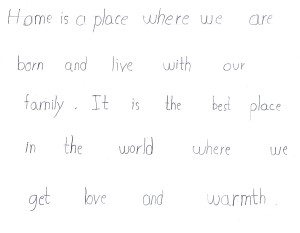 Home is a place where we are
born and live with our
family. It is the best place
in the world where we
get love and warmth.